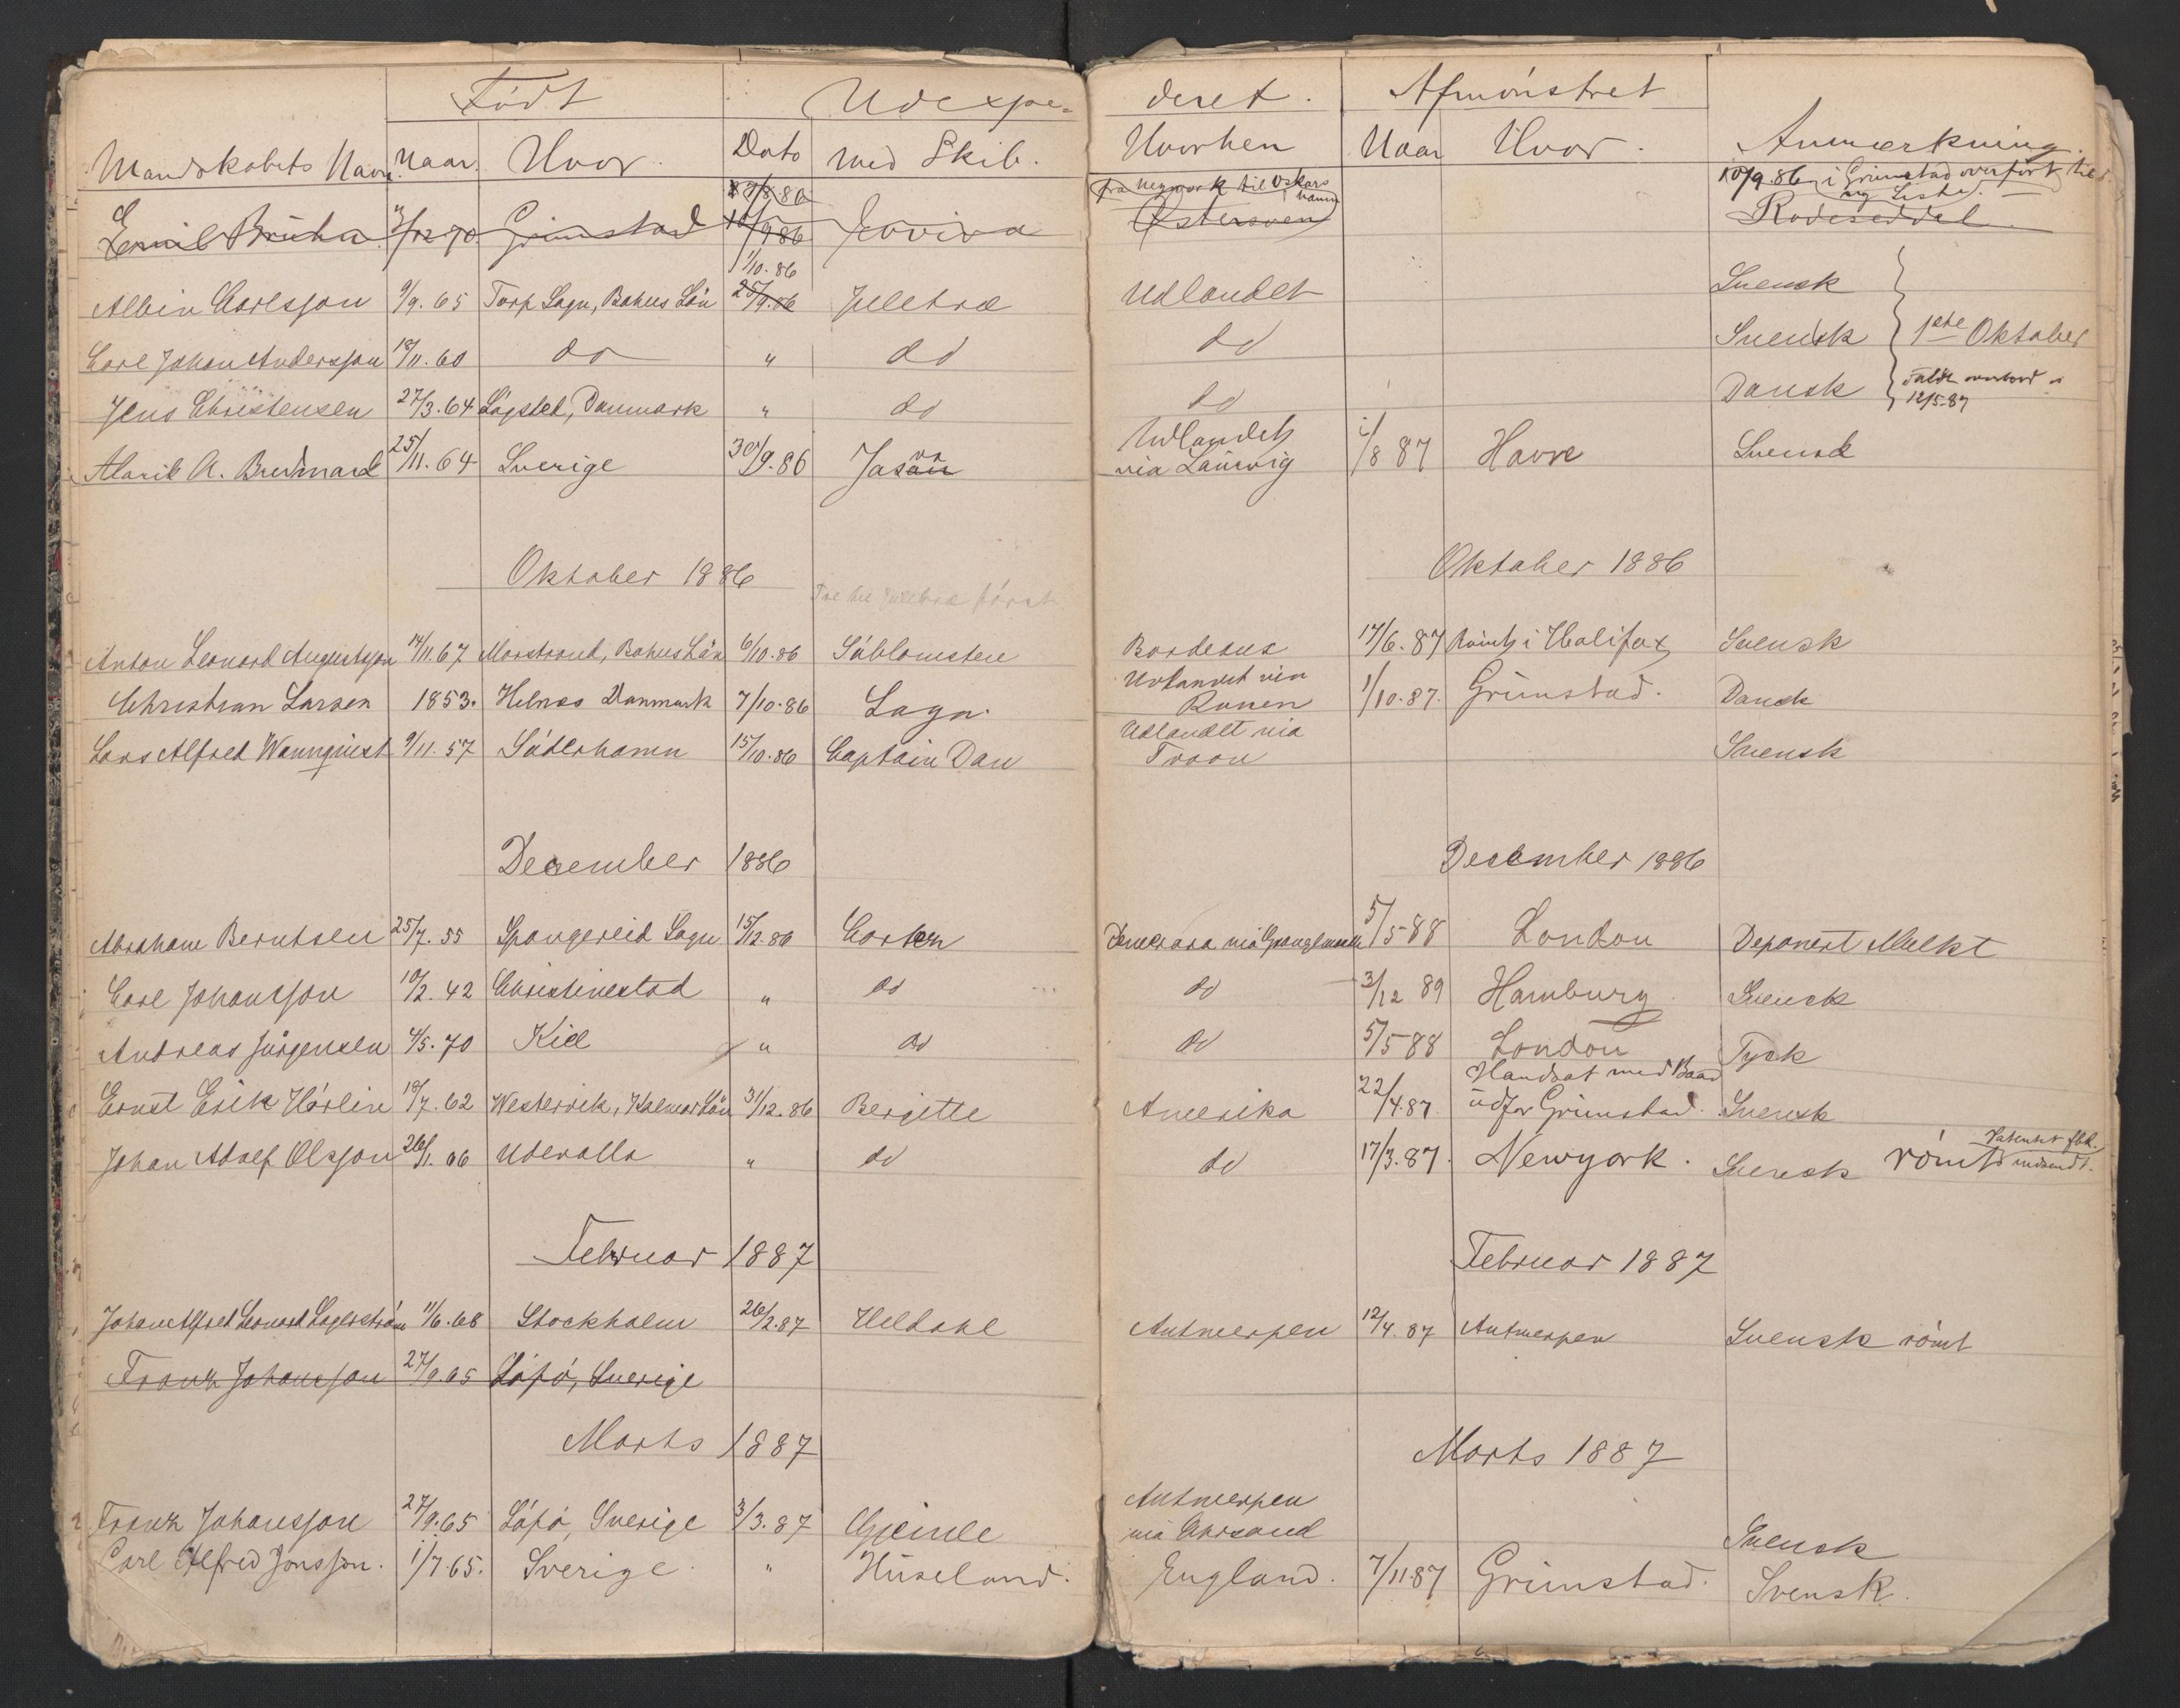 Født Udexpe= deret. Afmønstret
Mandskabets Navn Naar. Hvor. Dato med Skib. Hvorhen Naar Hvor. Anmærkning.
19/8.86 fra Newyork til Oskarshamn 10/9.86 i Grimstad overført til ny Liste.
Emil Bruhn 3/12 70 Grimstad 10/9 86 Joviva Østersøen Rodeseddel
1/10.86
Albin Carlsson 9/9.65 Torp Sogn, Bahus Län 25/9.86 Juletræ Udlandet Svensk
Carl Johan Andersson 18/11.60 do " do do Svensk 1ste Oktober
Jens Christensen 27/3.64 Løgsted, Danmark " do do Dansk faldt overbord
12/5-87
Alarik A. Bredmard 25/11.64 Sverige 30/9.86 Jason Udlandet via Laurvig 1/8 87 Havre Svensk
Oktober 1886 Oktober 1886
Anton Leonard Augustsson 14/11.67 Marstrand, Bahus Län 6/10.86 Sæblomsten Bordeaux 17/6.87 Rømt i Halifax Svensk
Christian Larsen 1853. Helnæs Danmark 7/10.86 Saga. Udlandet via Ronen 1/10.87. Grimstad. Dansk
Lars Alfred Wannquist 9/11.57 Söderhamn 15/10.86 Captain Dan Udlandet via Troon Svensk
December 1886 December 1886
Abraham Berntsen 25/7.55 Spangereid Sogn 15/12.86 Carsten Demerara via Grangemouth 5/5 88 London Deponert Mulkt
Carl Johansson 10/2.42 Christinestad " do do 3/12 89 Hamburg Svensk
Andreas Jürgensen 4/5.70 Kiel " do do 5/5 88 London Tysk
Ernst Erik Hörlin 18/7.62 Westervik, Kalmar Län 31/12.86 Bergitte Amerika 22/4.87. Handsat med Baad udfor Grimstad. Svensk
Johan Adolf Olsson 26/1.66 Udevalla " do do 17/3.87. Newyork. Svensk rømt Patentet indsendt.
Februar 1887 Februar 1887
Johan Alfred Leonard Lagerström 11/6.68 Stockholm 26/2.87 Heldahl Antwerpen 12/4.87 Antwerpen Svensk rømt
Frank Johansson 27/9.65 Löfö, Sverige
Marts 1887 Marts 1887
Frank Johansson 27/9.65 Löfö, Sverige 3/3.87 Gjemle Antwerpen via Chrsand Svensk
Carl Alfred Jonsson. 1/7.65. Sverige. " Huseland. England. 7/11 87 Grimstad. Svensk.